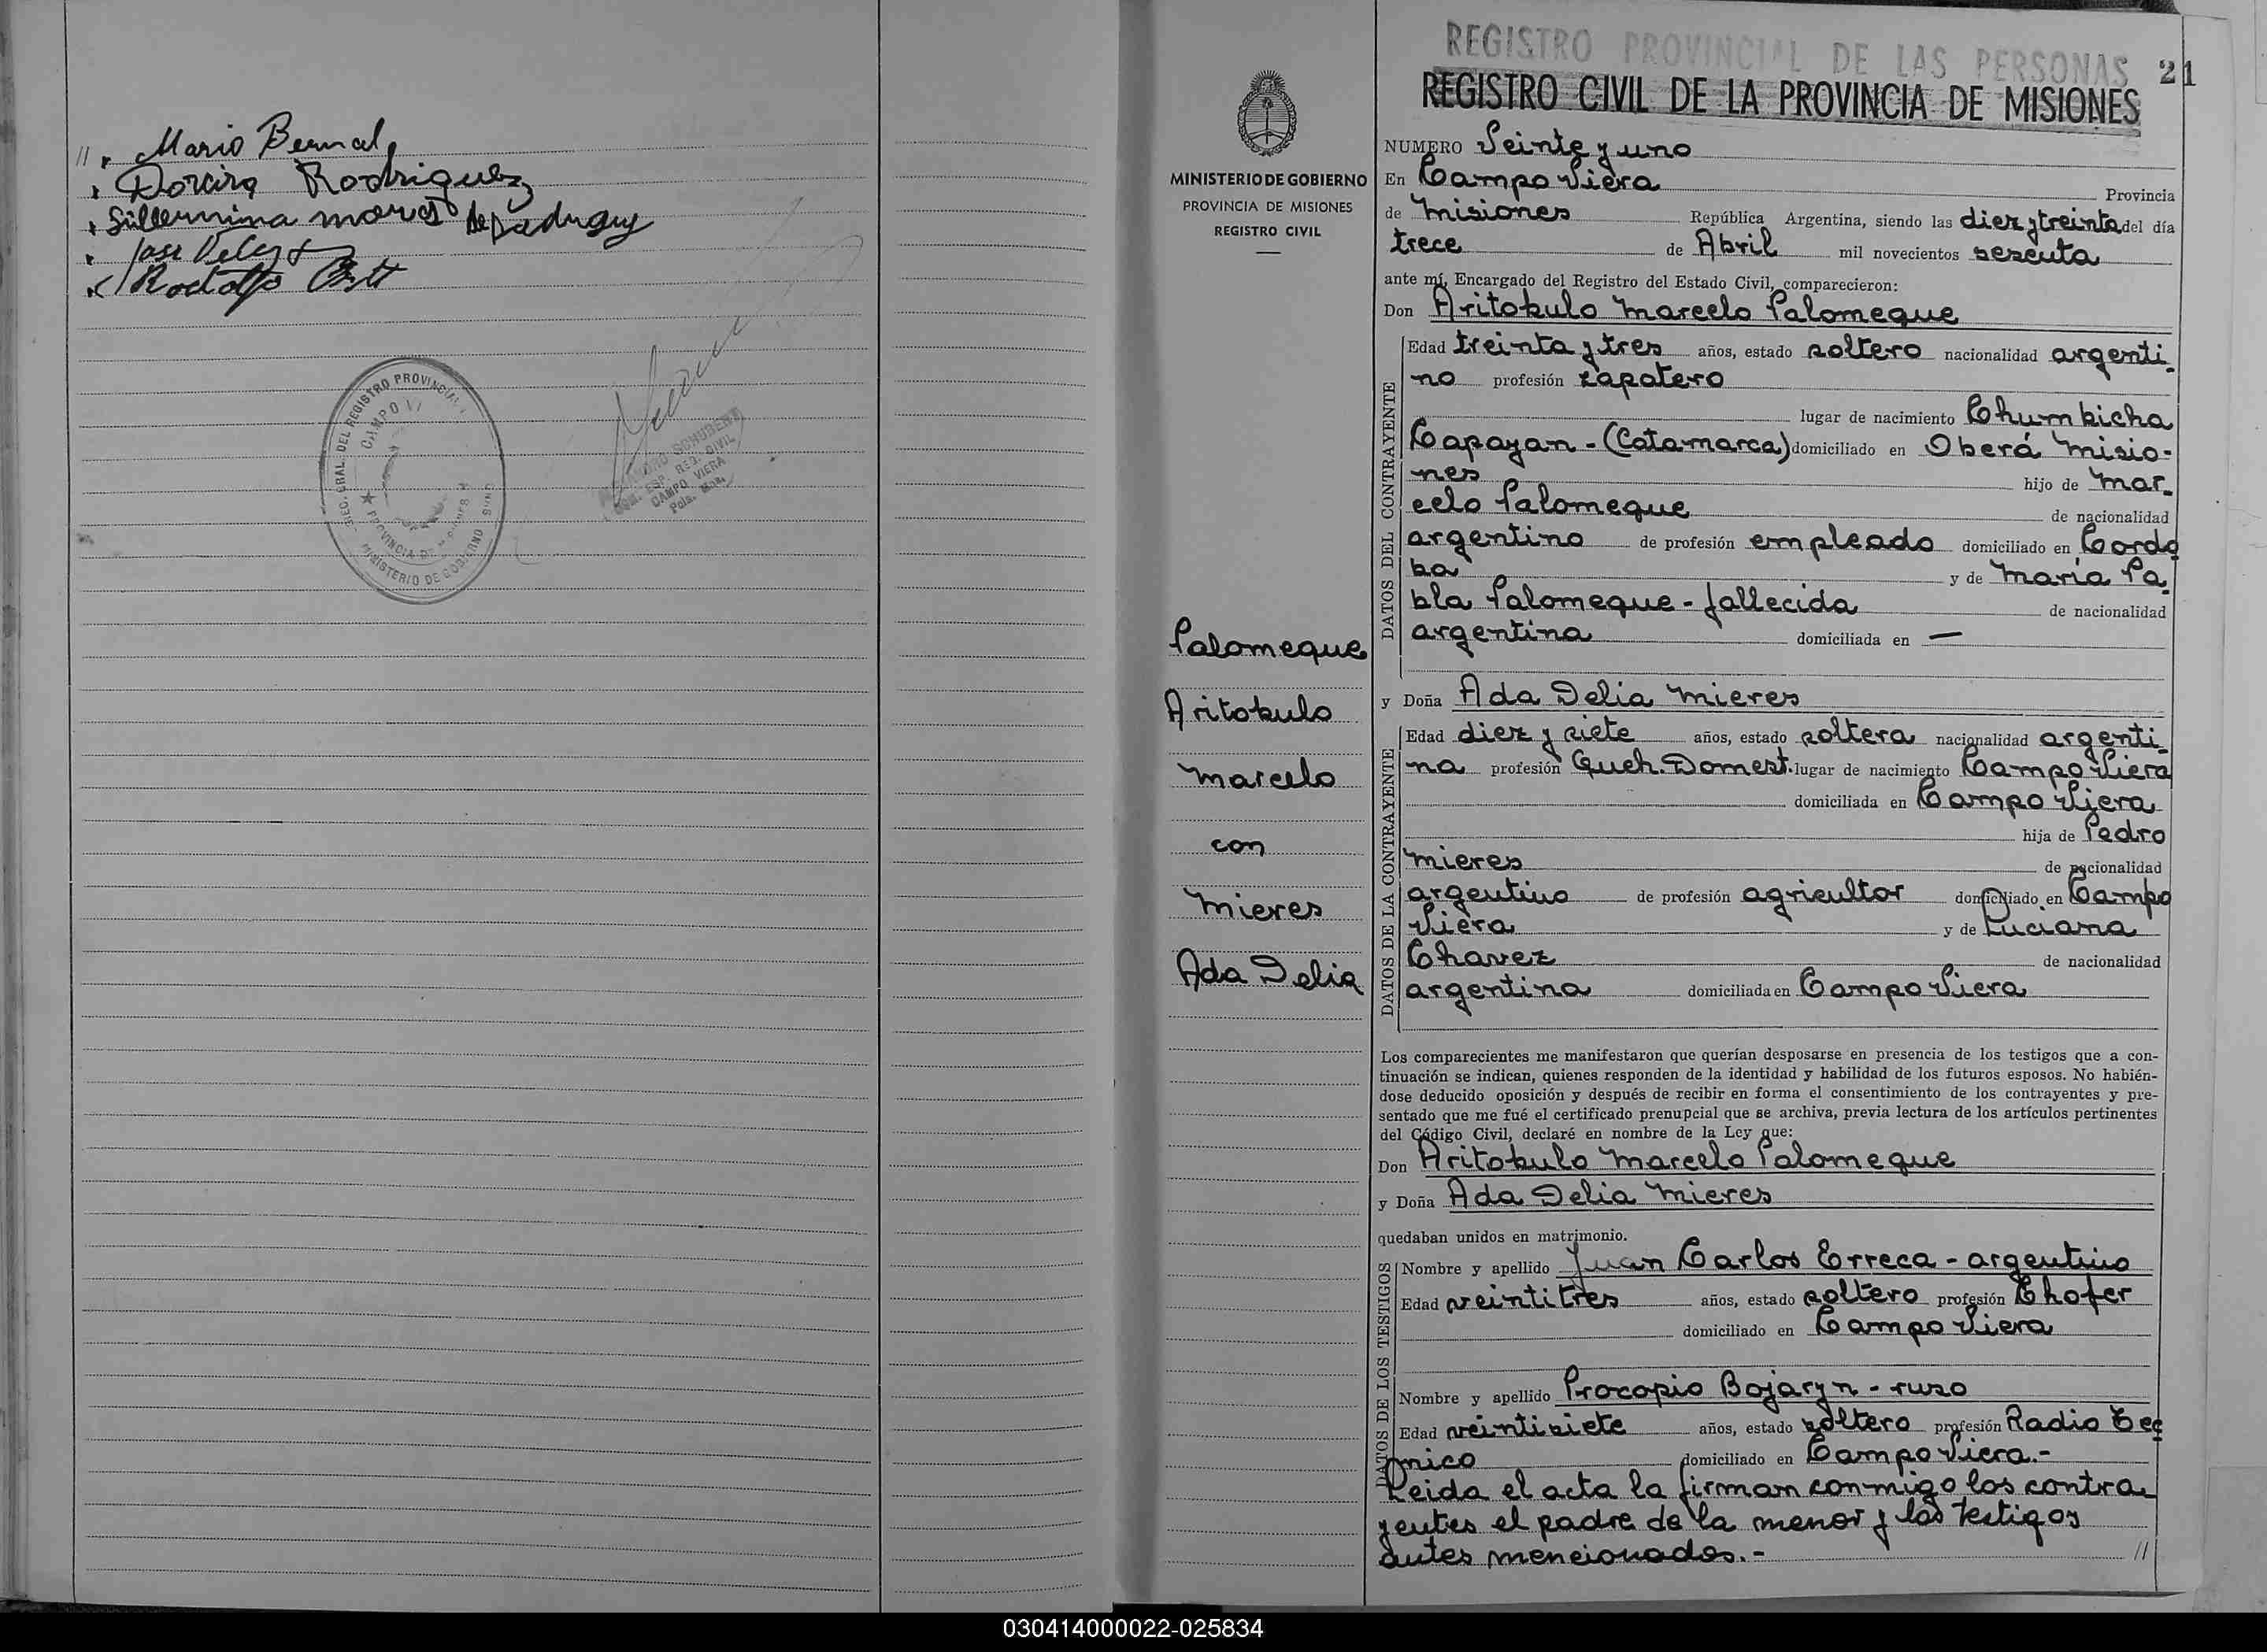 // Mario Bernal
Rodriguez
José Velez
Rodolfo
SEC. GRAL. DEL REGISTRO PROVINCIAL
CAMPO VI
PROVINCIA DE MISIONES
MINISTERIO DE GOBIERNO
SCHUBERT
ESP. REG. CIVIL
CAMPO VIERA
REGISTRO PROVINCIAL DE LAS PERSONAS
21
REGISTRO CIVIL DE LA PROVINCIA DE MISIONES
MINISTERIO DE GOBIERNO
PROVINCIA DE MISIONES
REGISTRO CIVIL
Palomeque
Aritobulo
Marcelo
con
Mieres
Ada Delia
NUMERO Veinte y uno
En Campo Viera Provincia
de Misiones República Argentina, siendo las diez y treinta del día
trece de Abril mil novecientos sesenta
ante mí, Encargado del Registro del Estado Civil, comparecieron:
Don Aritobulo Marcelo Palomeque
DATOS DEL CONTRAYENTE
Edad treinta y tres años, estado soltero nacionalidad argenti-
no profesión zapatero
lugar de nacimiento Chumbicha
Capayan - (Catamarca) domiciliado en Oberá Misio-
nes hijo de Mar-
celo Palomeque de nacionalidad
argentino de profesión empleado domiciliado en Cordo
ba y de María Pa-
bla Palomeque - fallecida de nacionalidad
argentina domiciliada en —
y Doña Ada Delia Mieres
DATOS DE LA CONTRAYENTE
Edad diez y siete años, estado soltera nacionalidad argenti-
na profesión Queh. Domest. lugar de nacimiento Campo Viera
domiciliada en Campo Viera
hija de Pedro
Mieres de nacionalidad
argentino de profesión agricultor domiciliado en Campo
Viera y de Luciana
Chavez de nacionalidad
argentina domiciliada en Campo Viera
Los comparecientes me manifestaron que querían desposarse en presencia de los testigos que a con-
tinuación se indican, quienes responden de la identidad y habilidad de los futuros esposos. No habién-
dose deducido oposición y después de recibir en forma el consentimiento de los contrayentes y pre-
sentado que me fué el certificado prenupcial que se archiva, previa lectura de los artículos pertinentes
del Código Civil, declaré en nombre de la Ley que:
Don Aritobulo Marcelo Palomeque
y Doña Ada Delia Mieres
quedaban unidos en matrimonio.
DATOS DE LOS TESTIGOS
Nombre y apellido Juan Carlos Erreca - argentino
Edad veintitres años, estado soltero profesión Chofer
domiciliado en Campo Viera
Nombre y apellido Procopio Bojaryn - ruso
Edad veintisiete años, estado soltero profesión Radio Tec
nico domiciliado en Campo Viera.-
Leida el acta la firman conmigo los contra-
yentes el padre de la menor y los testigos
antes mencionados.- //
030414000022-025834